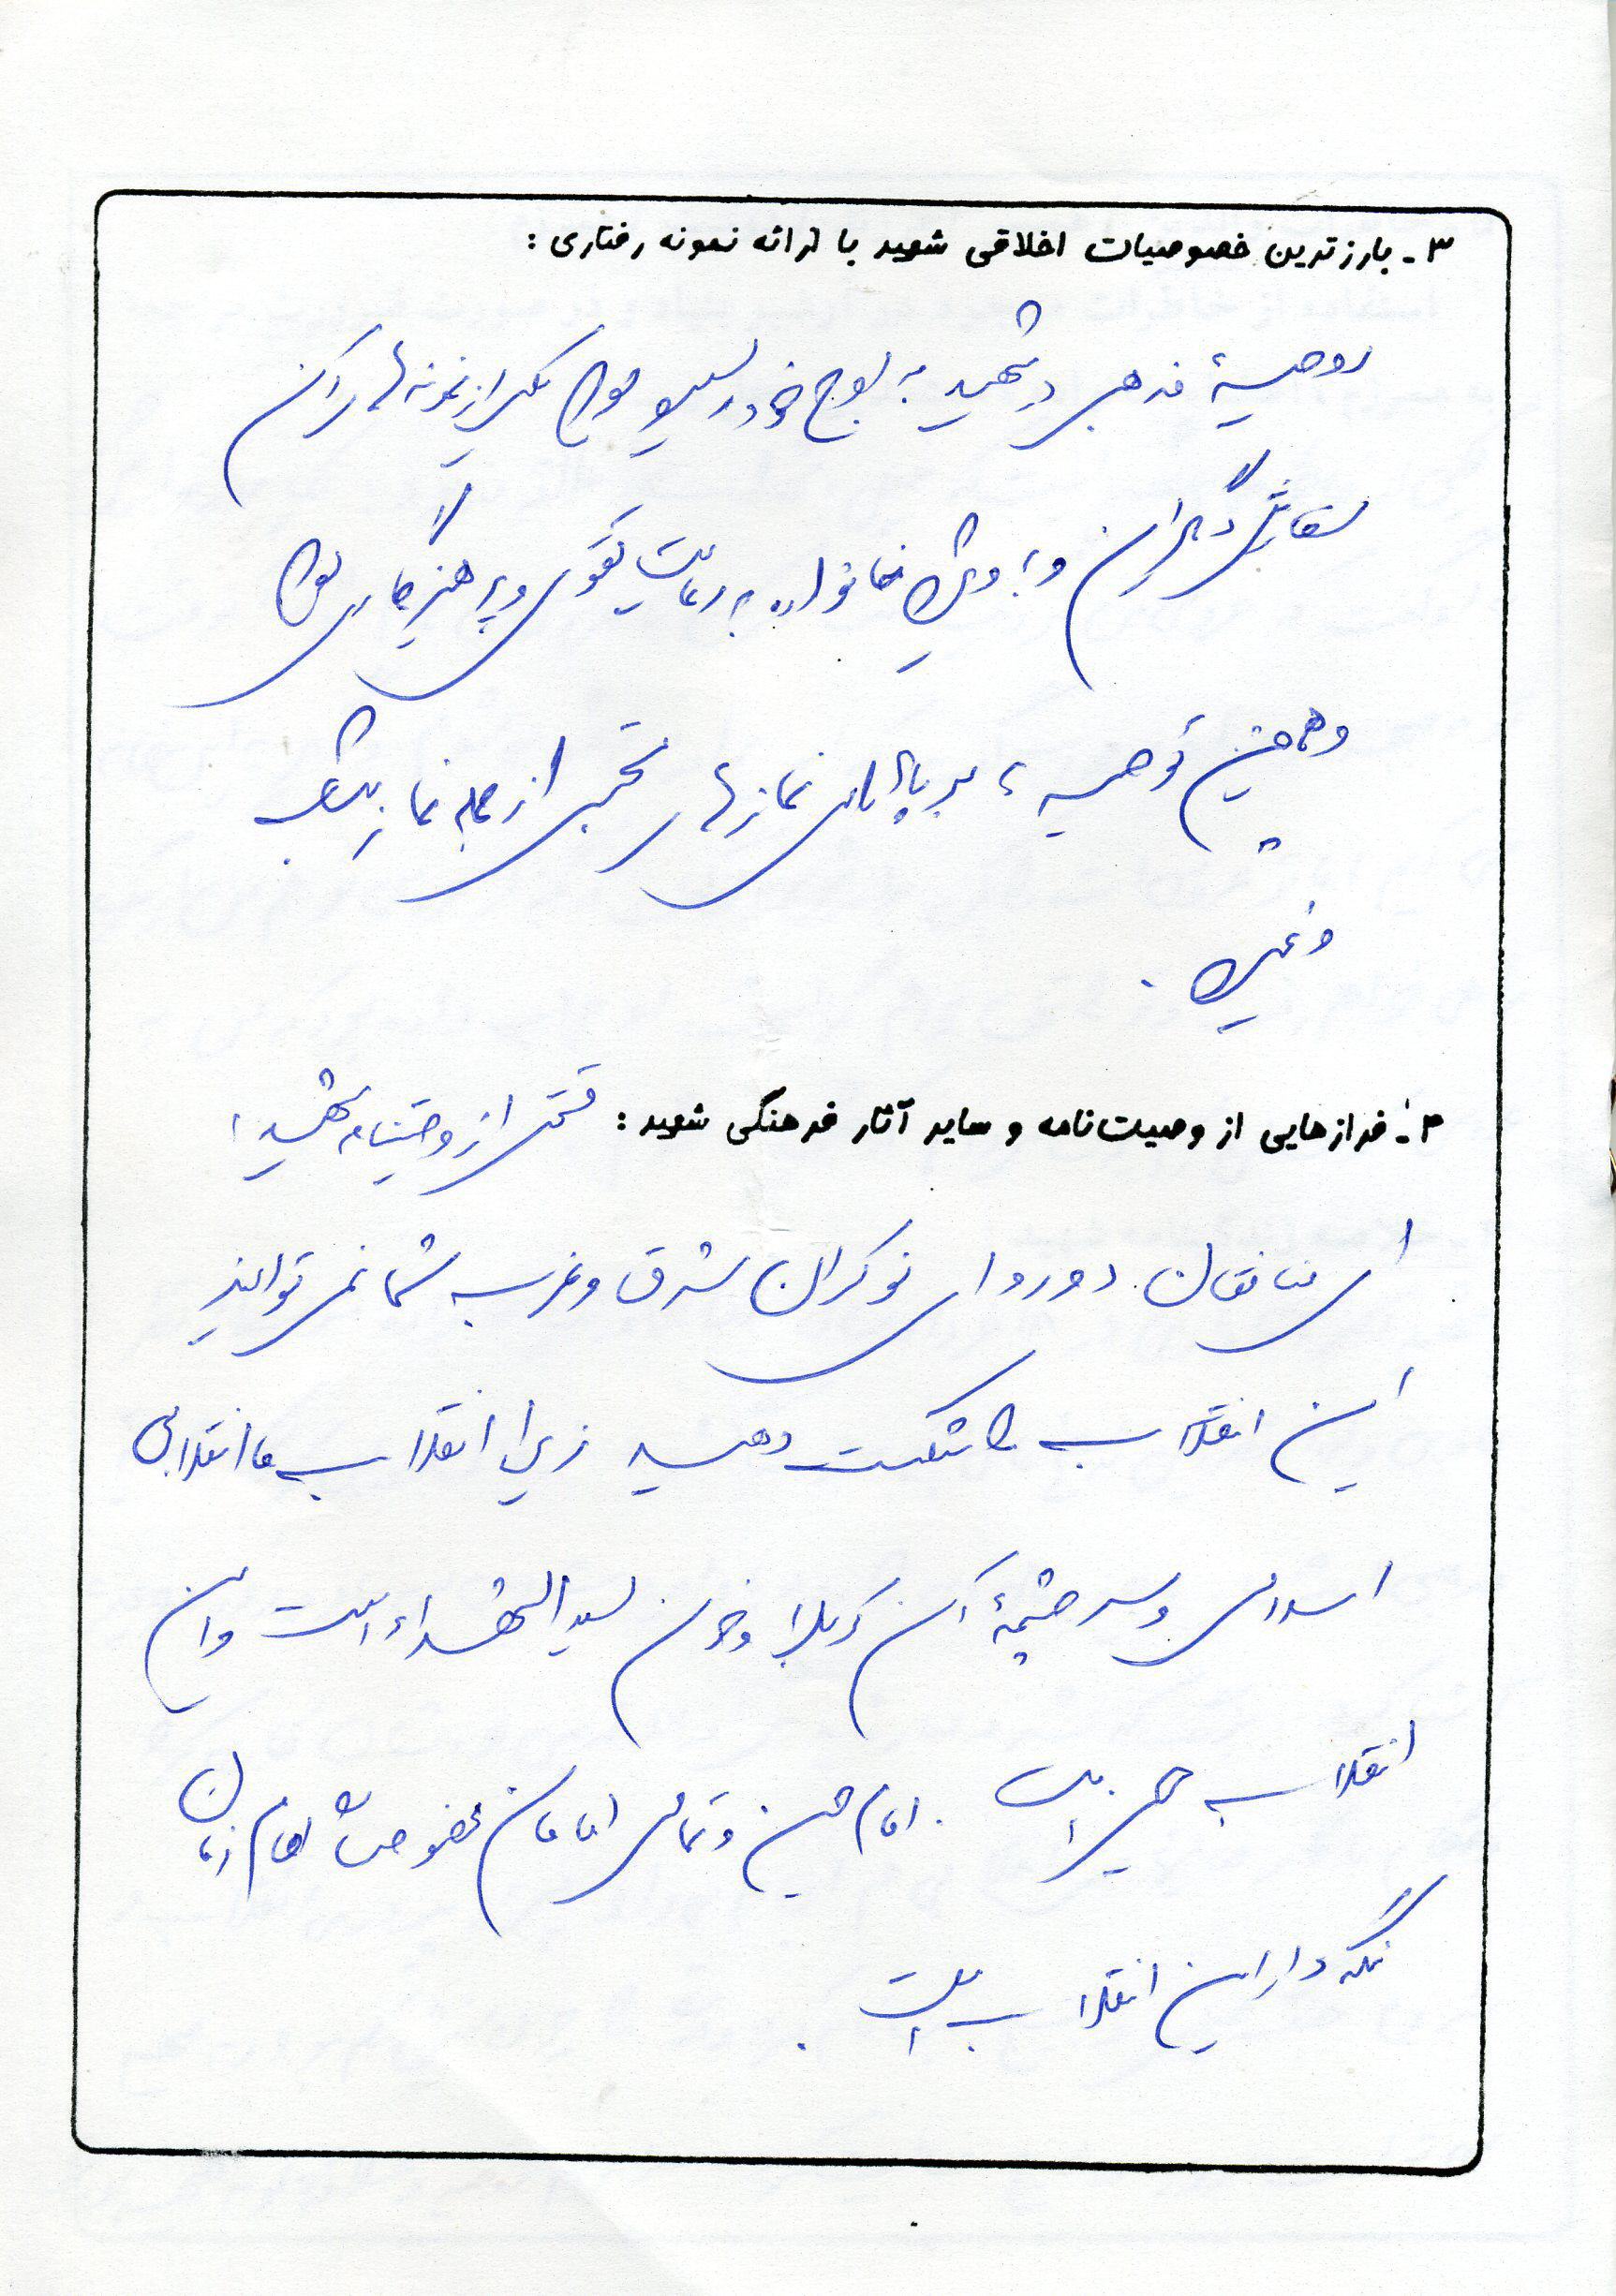 ۳- بارزترین خصوصیات اخلاقی شهید با ارائه نمونه رفتاری:
روحیهٔ مذهبی در شهید به اوج خود رسیده بود یکی از نمونه های آن
سفارش دیگران و به ویژه خانواده به رعایت تقوی و پرهیزکاری بود
و همچنین توصیه به برپائی نمازهای مستحبی از جمله نماز شب
و غیره .
۴- فرازهایی از وصیت‌نامه و سایر آثار فرهنگی شهید: قسمتی از وصیتنامه شهید:
ای منافقان دورو ای نوکران شرق و غرب شما نمی توانید
این انقلاب را شکست دهید زیرا انقلاب ما انقلابی
اسلامی و سرچشمهٔ آن کربلا و خون سیدالشهداء است و این
انقلاب حسینی است . امام حسین و تمامی امامان بخصوص امام زمان
نگه دار این انقلاب است .